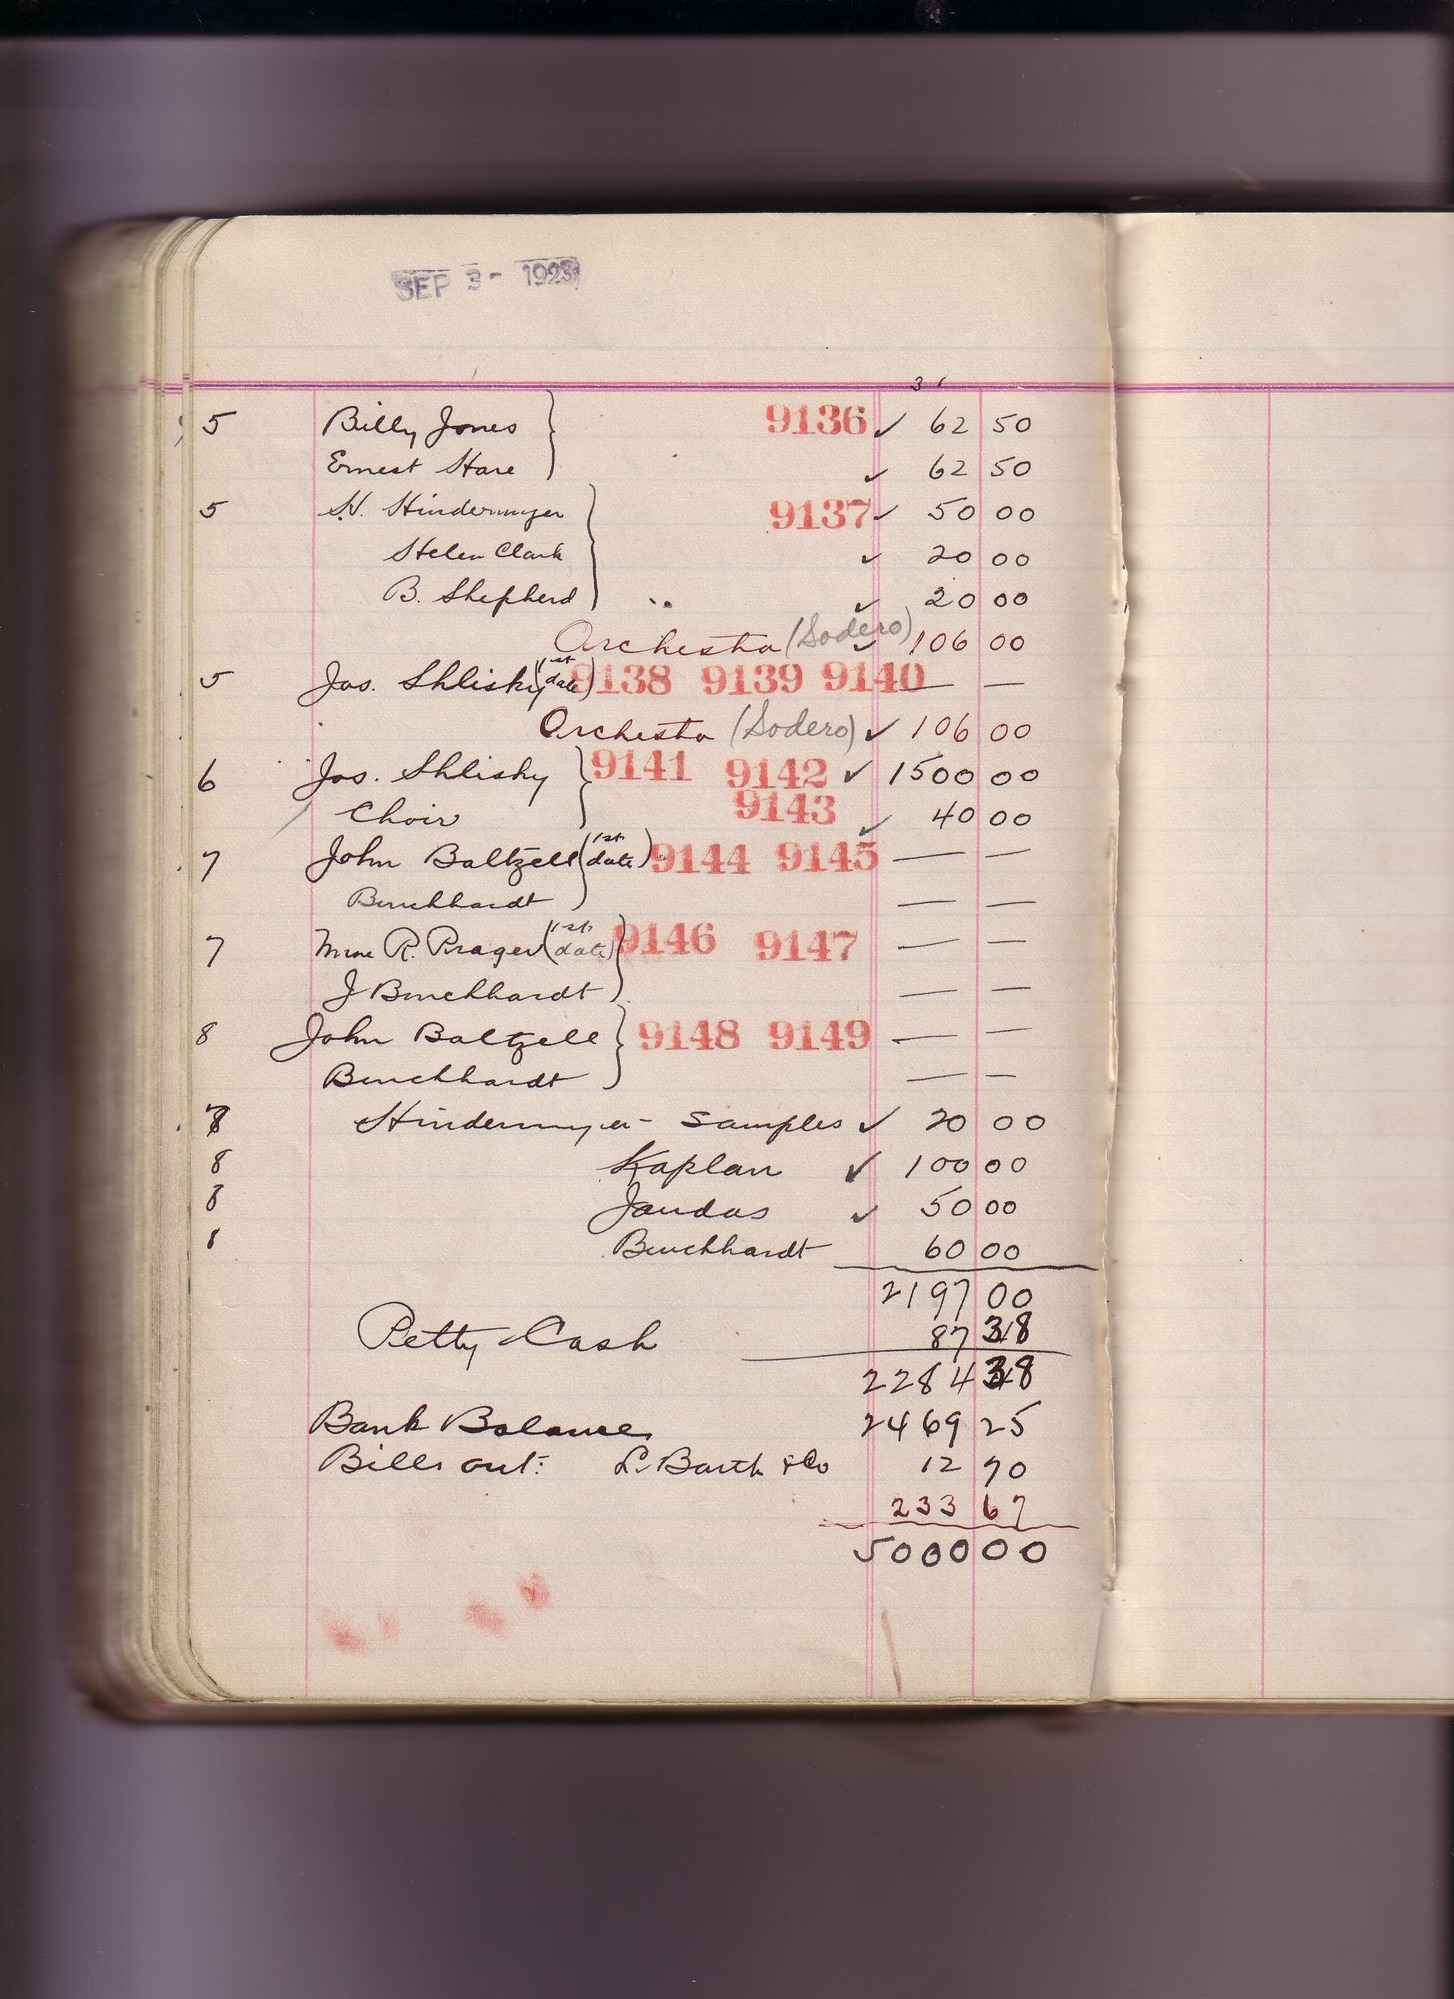 SEP 3 - 1923
5 Billy Jones 9136 ✓ 62 50
Ernest Hare ✓ 62 50
5 H. Hindermyer 9137 ✓ 50 00
Helen Clark ✓ 20 00
B. Shepherd ✓ 20 00
Orchestra (Sodero) ✓ 106 00
5 Jos. Shlisky (1st date) 9138 9139 9140 — —
Orchestra (Sodero) ✓ 106 00
6 Jos. Shlisky 9141 9142 ✓ 1500 00
Choir 9143 ✓ 40 00
7 John Baltzell (1st date) 9144 9145 — —
Burckhardt — —
7 Mme R. Prager (1st date) 9146 9147 — —
J Burckhardt — —
8 John Baltzell 9148 9149 — —
Burckhardt — —
8 Hindermyer - Samples ✓ 20 00
8 Kaplan ✓ 100 00
8 Jaudas ✓ 50 00
Burckhardt 60 00
2197 00
Petty Cash 87 38
2284 38
Bank Balance 2469 25
Bills out: L. Barth & Co 12 70
233 67
5000 00